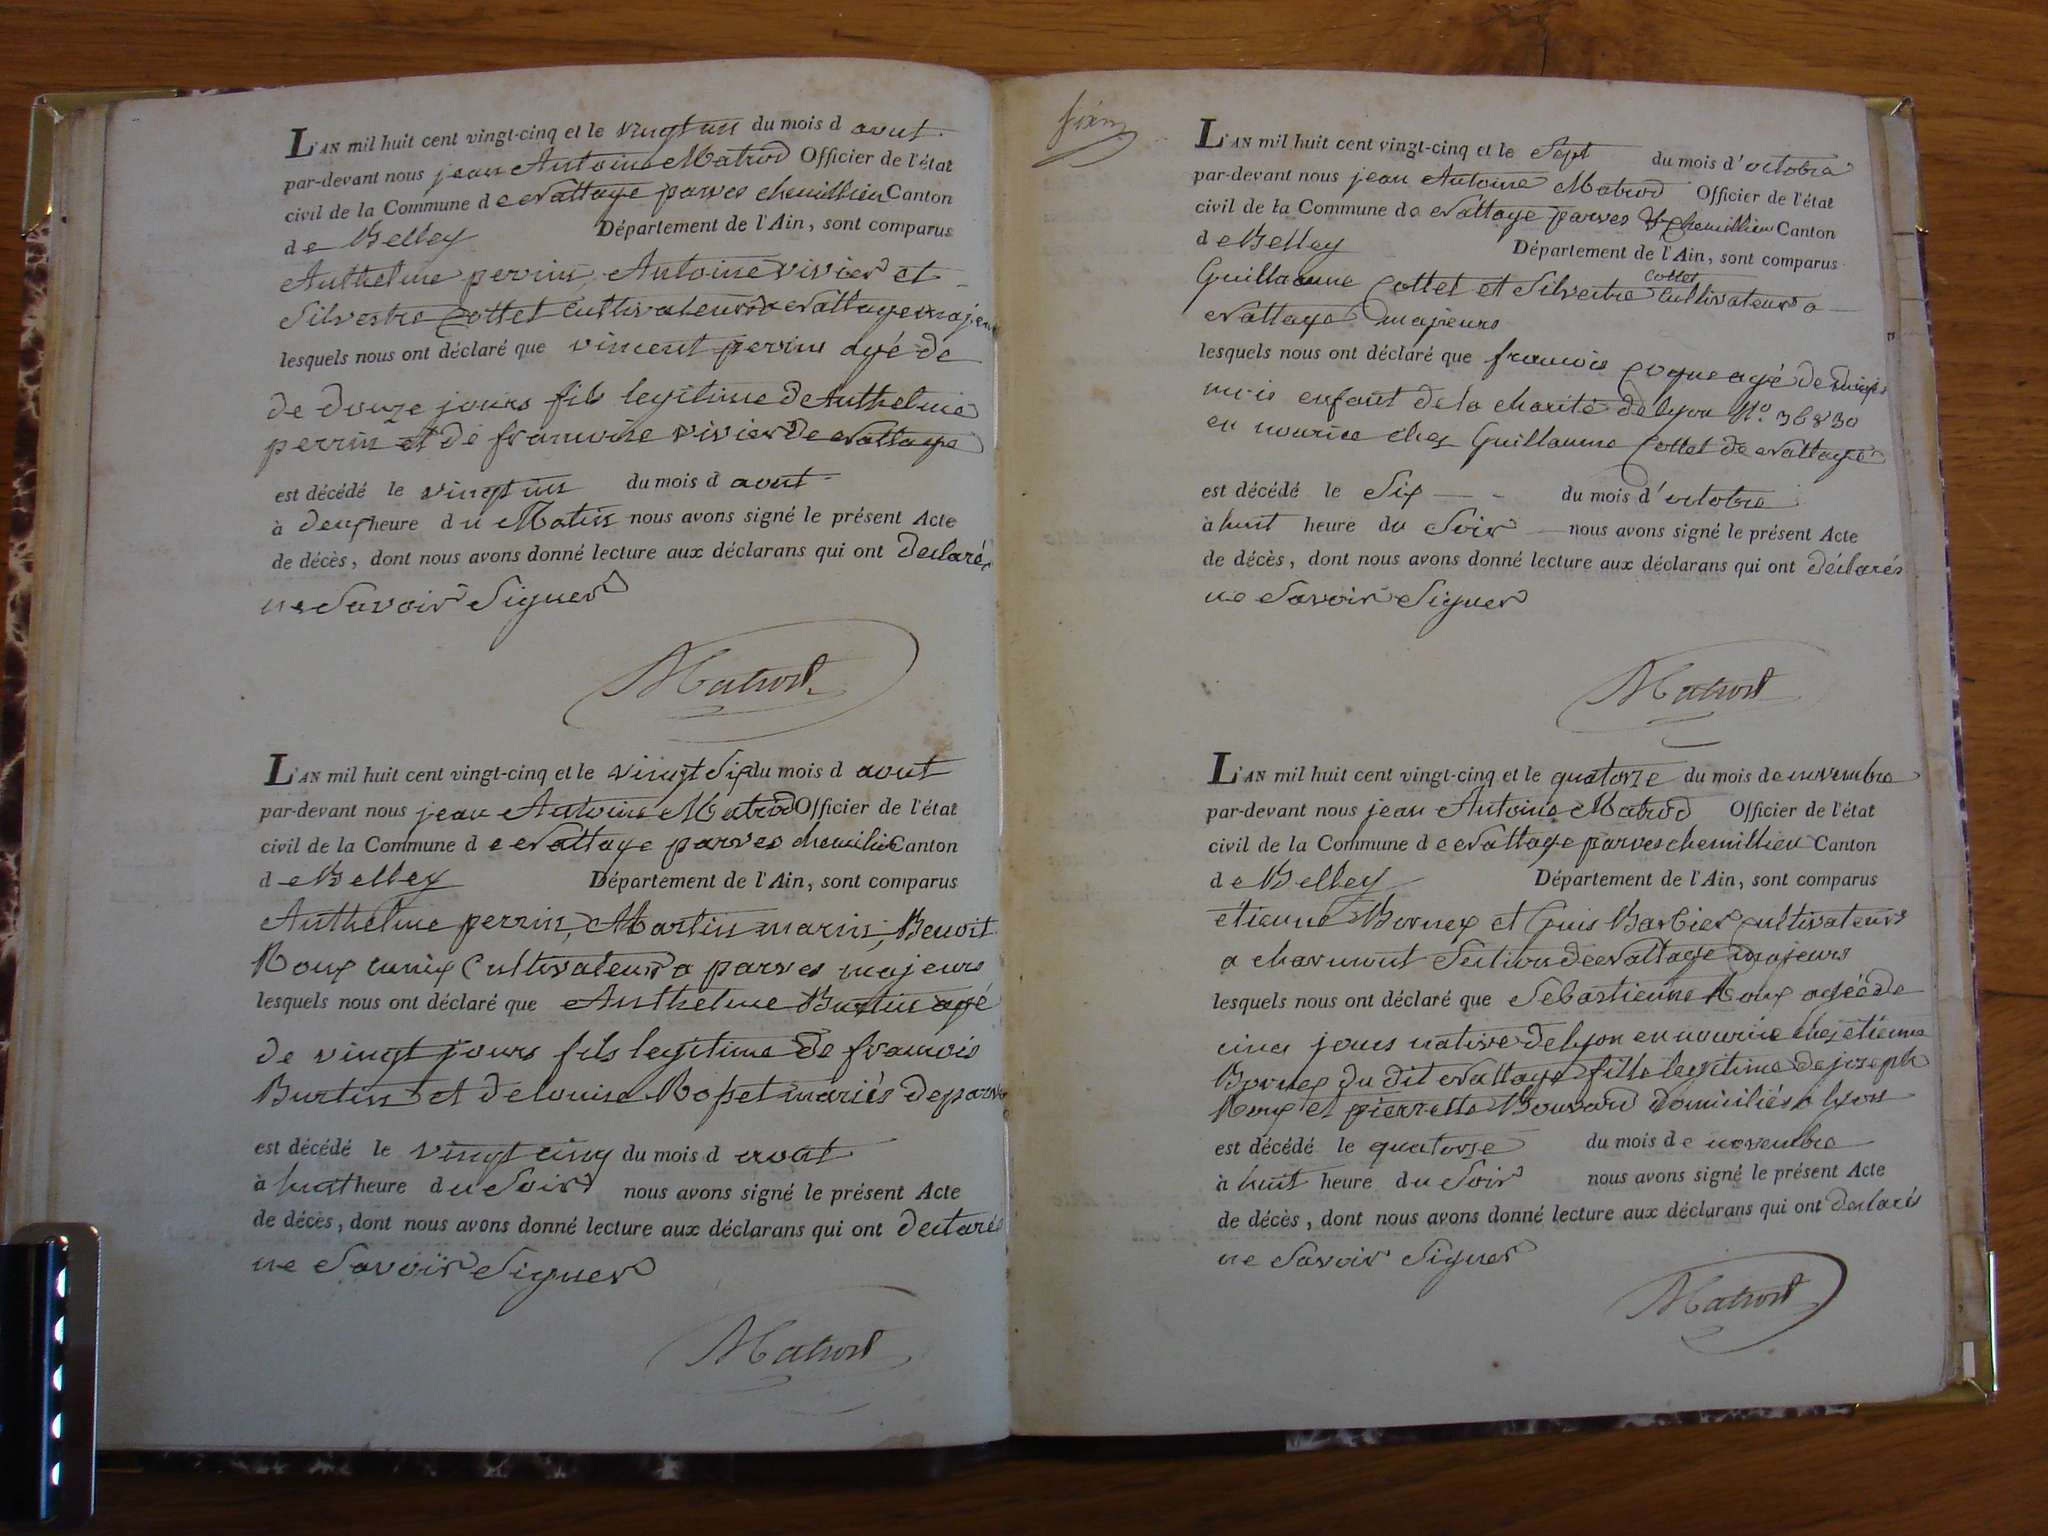 L'AN mil huit cent vingt-cinq et le vingt un du mois d aout
par-devant nous jean Antoine Matrod Officier de l'état
civil de la Commune de Nattage parves chemillieu Canton
de Belley Département de l'Ain, sont comparus
Anthelme perrin, Antoine vivier et
Silvestre Cottet Cultivateurs a Nattage majeurs
lesquels nous ont déclaré que vincent perrin agé de
de douze jours fils legitime de Anthelme
perrin et de francoise vivier de Nattage
est décédé le vingt un du mois d aout
à deux heure du Matin nous avons signé le présent Acte
de décès, dont nous avons donné lecture aux déclarans qui ont declarés
ne Savoir Signer
Matrod
L'AN mil huit cent vingt-cinq et le vingt Six du mois d aout
par-devant nous jean Antoine Matrod Officier de l'état
civil de la Commune de Nattage parves chemilieu Canton
de Belley Département de l'Ain, sont comparus
Anthelme perrin, Martin marin, Benoit
Roux Cultivateurs a parves majeurs
lesquels nous ont déclaré que Anthelme Burtin agé
de vingt jours fils legitime de francois
Burtin et de louise Rosset mariés de parves
est décédé le vingt cinq du mois d aout
à huit heure du Soir nous avons signé le présent Acte
de décès, dont nous avons donné lecture aux déclarans qui ont declarés
ne Savoir Signer
Matrod
L'AN mil huit cent vingt-cinq et le Sept du mois d'octobre
par-devant nous jean Antoine Matrod Officier de l'état
civil de la Commune de Nattage parves & Chemillieu Canton
de Belley Département de l'Ain, sont comparus
Guillaume Cottet et Silvestre Cottet Cultivateurs a
Nattage majeurs
lesquels nous ont déclaré que francois agé de
mois enfant de la charité de lyon N.o 36830
en nourice chez Guillaume Cottet de Nattage
est décédé le Six du mois d'octobre
à huit heure du Soir nous avons signé le présent Acte
de décès, dont nous avons donné lecture aux déclarans qui ont déclarés
ne Savoir Signer
Matrod
L'AN mil huit cent vingt-cinq et le quatorze du mois de novembre
par-devant nous jean Antoine Matrod Officier de l'état
civil de la Commune de Nattage parves chemillieu Canton
de Belley Département de l'Ain, sont comparus
etienne Bornex et Louis Barbier Cultivateurs
a charmont Section de Nattage majeurs
lesquels nous ont déclaré que Sebastienne Roux agée de
cinq jours native de lyon en nourice chez etienne
Bornex du dit Nattage fille legitime de joseph
Roux et pierrette Bouvard domiciliés a lyon
est décédé le quatorze du mois de novembre
à huit heure du Soir nous avons signé le présent Acte
de décès, dont nous avons donné lecture aux déclarans qui ont declarés
ne Savoir Signer
Matrod